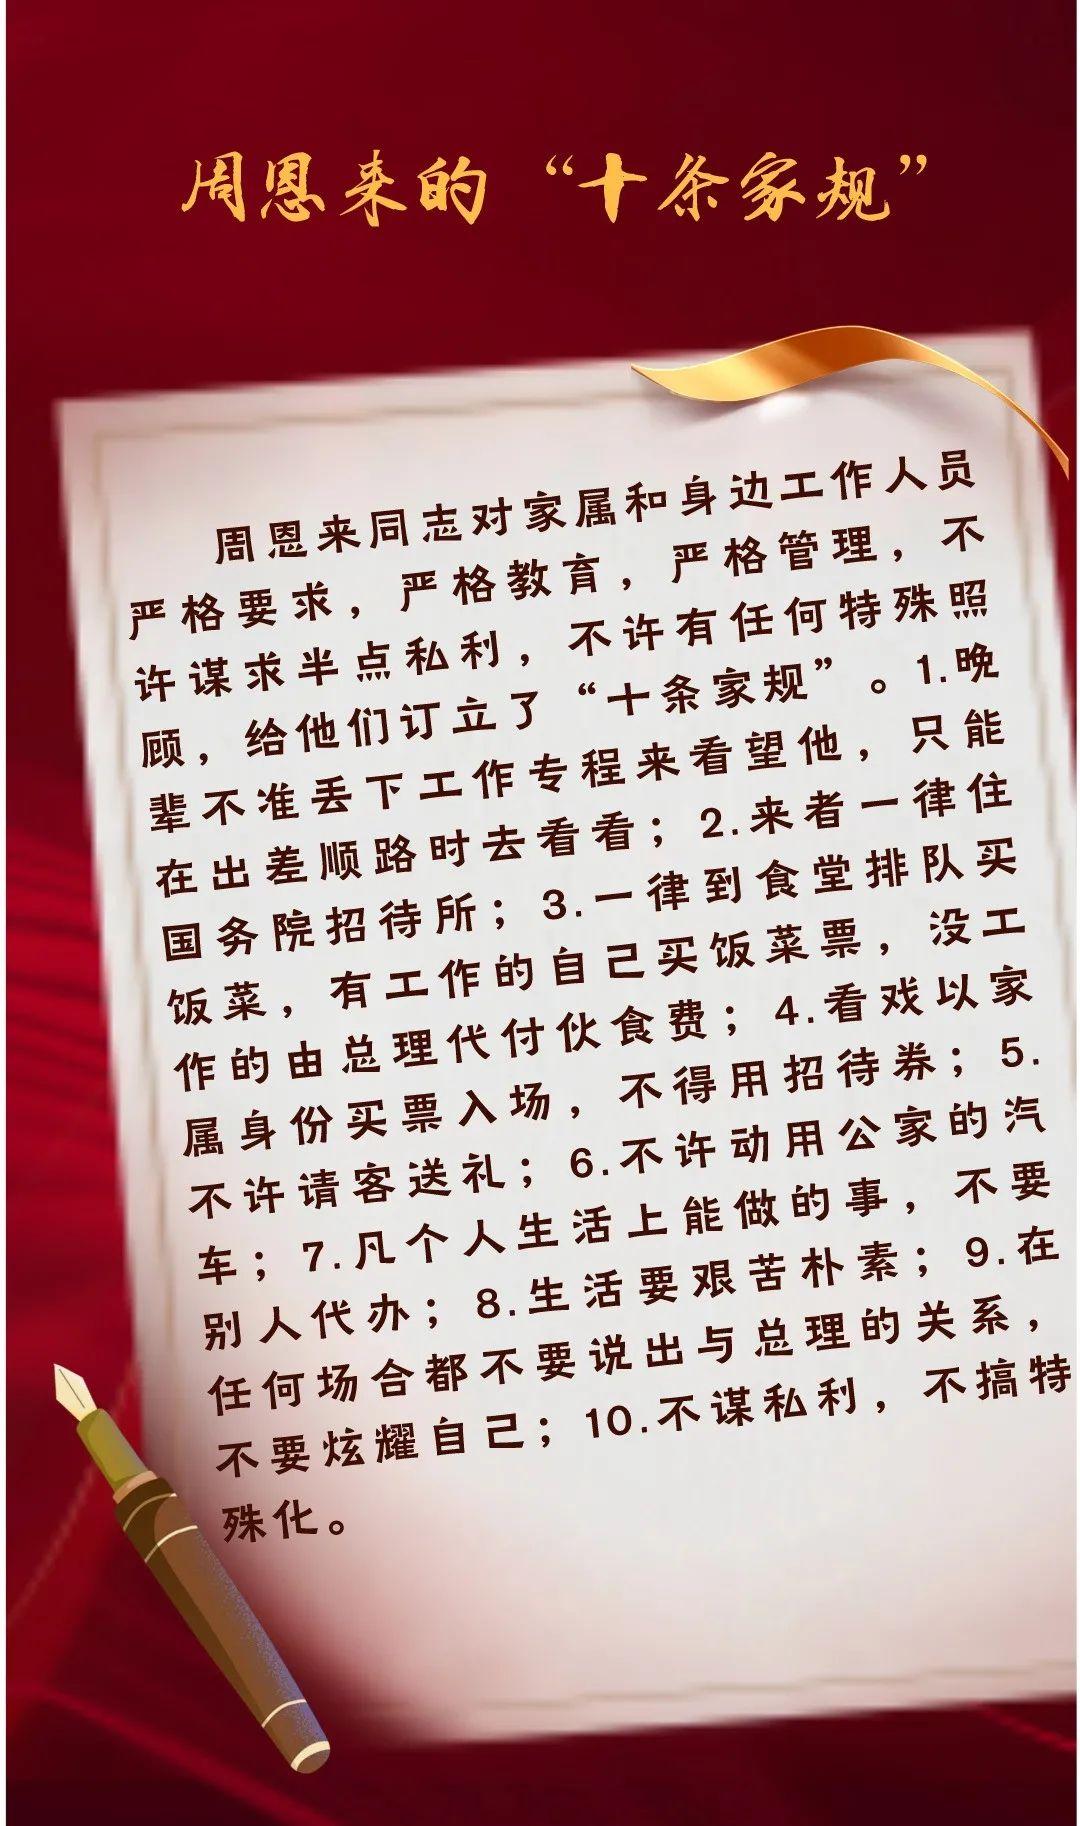 周恩来的“十条家规”
周恩来同志对家属和身边工作人员
严格要求，严格教育，严格管理，不
许谋求半点私利，不许有任何特殊照
顾，给他们订立了“十条家规”。1.晚
辈不准丢下工作专程来看望他，只能
在出差顺路时去看看；2.来者一律住
国务院招待所；3.一律到食堂排队买
饭菜，有工作的自己买饭菜票，没工
作的由总理代付伙食费；4.看戏以家
属身份买票入场，不得用招待券；5.
不许请客送礼；6.不许动用公家的汽
车；7.凡个人生活上能做的事，不要
别人代办；8.生活要艰苦朴素；9.在
任何场合都不要说出与总理的关系，
不要炫耀自己；10.不谋私利，不搞特
殊化。